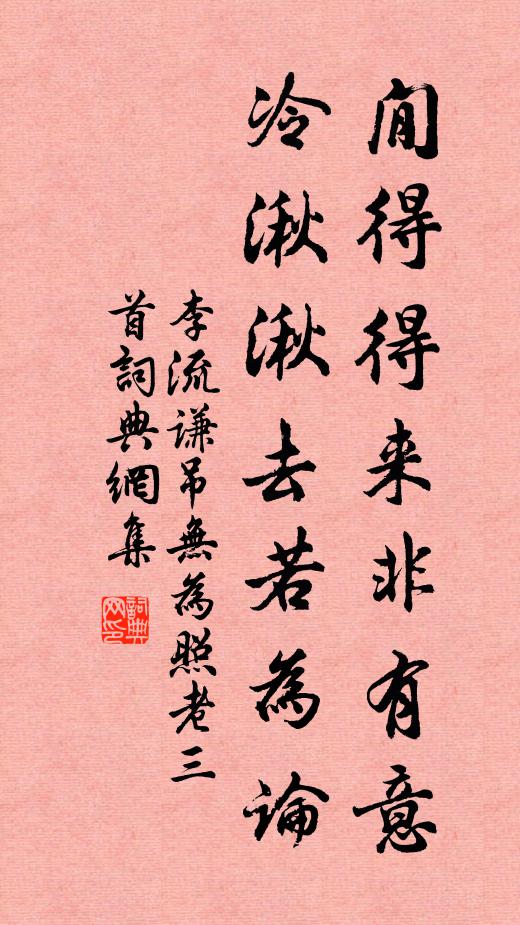 閒得得来非有意
冷湫湫去若為論
李流谦吊無為照老三
首詞典網集
詞典
网印